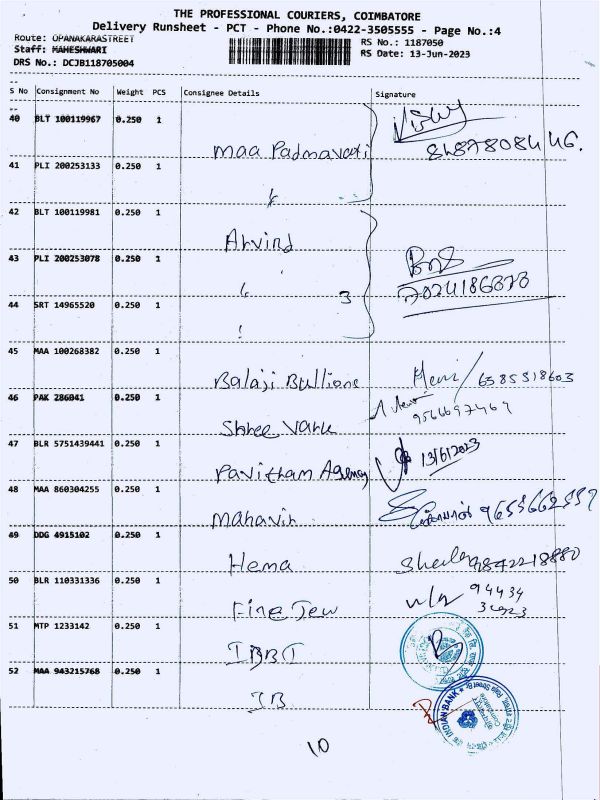 THE PROFESSIONAL COURIERS, COIMBATORE
Delivery Runsheet - PCT - Phone No.:0422-3505555 - Page No.:4
Route: OPANAKARASTREET
RS No.: 1187050
Staff: MAHESHWARI
RS Date: 13-Jun-2023
DRS No.: DCJB118705004
S No Consignment No Weight PCS Consignee Details Signature
40 BLT 100119967 0.250 1
Maa Padmavati
41 PLI 200253133 0.250 1
42 BLT 100119981 0.250 1
Arvind
43 PLI 200253078 0.250 1
3
44 SRT 14965520 0.250 1
45 MAA 100268382 0.250 1
Balaji Bullione
46 PAK 286041 0.250 1
9566697469
Shree Varu
47 BLR 5751439441 0.250 1
13/6/2023
Pavitham Agency
48 MAA 860304255 0.250 1
Mahavir
49 DDG 4915102 0.250 1
Hema 9842218880
50 BLR 110331336 0.250 1
94434
Fine Jew
51 MTP 1233142 0.250 1
IBBI
52 MAA 943215768 0.250 1
IB
INDIAN BANK
Coimbatore
10